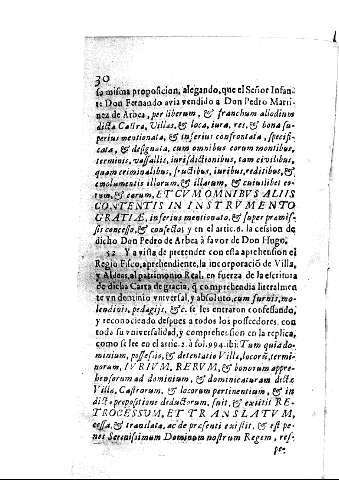 30
sa misma proposicion, alegando, que el Señor Infan-
te Don Fernando avia vendido a Don Pedro Marti-
nez de Arbea, per liberum, & franchum aliodium
dicta Castra, Villas, & loca, iura, res, & bona su-
perius mentionata, & inferius confrontata, specifi-
cata, & designata, cum omnibus eorum montibus,
terminis, vassallis, iurisdictionibus, tam civilibus,
quam criminalibus, fructibus, iuribus, reditibus, &
emolumentis illorum, & illarum, & cuiuslibet eo-
rum, & earum, ET CUM OMNIBUS ALIIS
CONTENTIS IN INSTRVMENTO
GRATIÆ, inferius mentionato, & super præmis-
sis concesso, & confecto; y en el artic. 6. la cession de
dicho Don Pedro de Arbea à favor de Don Hugo.
52 Y a vista de pretender con esta aprehension el
Regio Fisco, aprehendiente, la incorporació de Villa,
y Aldeas, al patrimonio Real, en fuerza de la escritura
de dicha Carta de gracia, q̃ comprehendia literalmen
te vn dominio vniversal, y absoluto, cum furnis, mo-
lendinis, pedagijs, &c. se les entraron confessando,
y reconociendo despues a todos los possedores, con
toda su vniversalidad, y comprehension en la replica,
como se lee en el artic. 2. à fol. 994. ibi: Tum quia do-
minium, possessio, & detentatio Villæ, locorũ, termi-
norum, IVRIVM, RERVM, & bonorum appre-
hensorum ad dominium, & dominicaturam dictæ
Villæ, Castrorum, & locorum pertinentium, & in
dicta propositione deductorum, fuit, & exiitit RE-
TROCESSUM, ET TRANSLATVM,
cessa, & translata, ac de præsenti existit, & est pe-
nes Serenissimum Dominum nostrum Regem, ref-
pe-